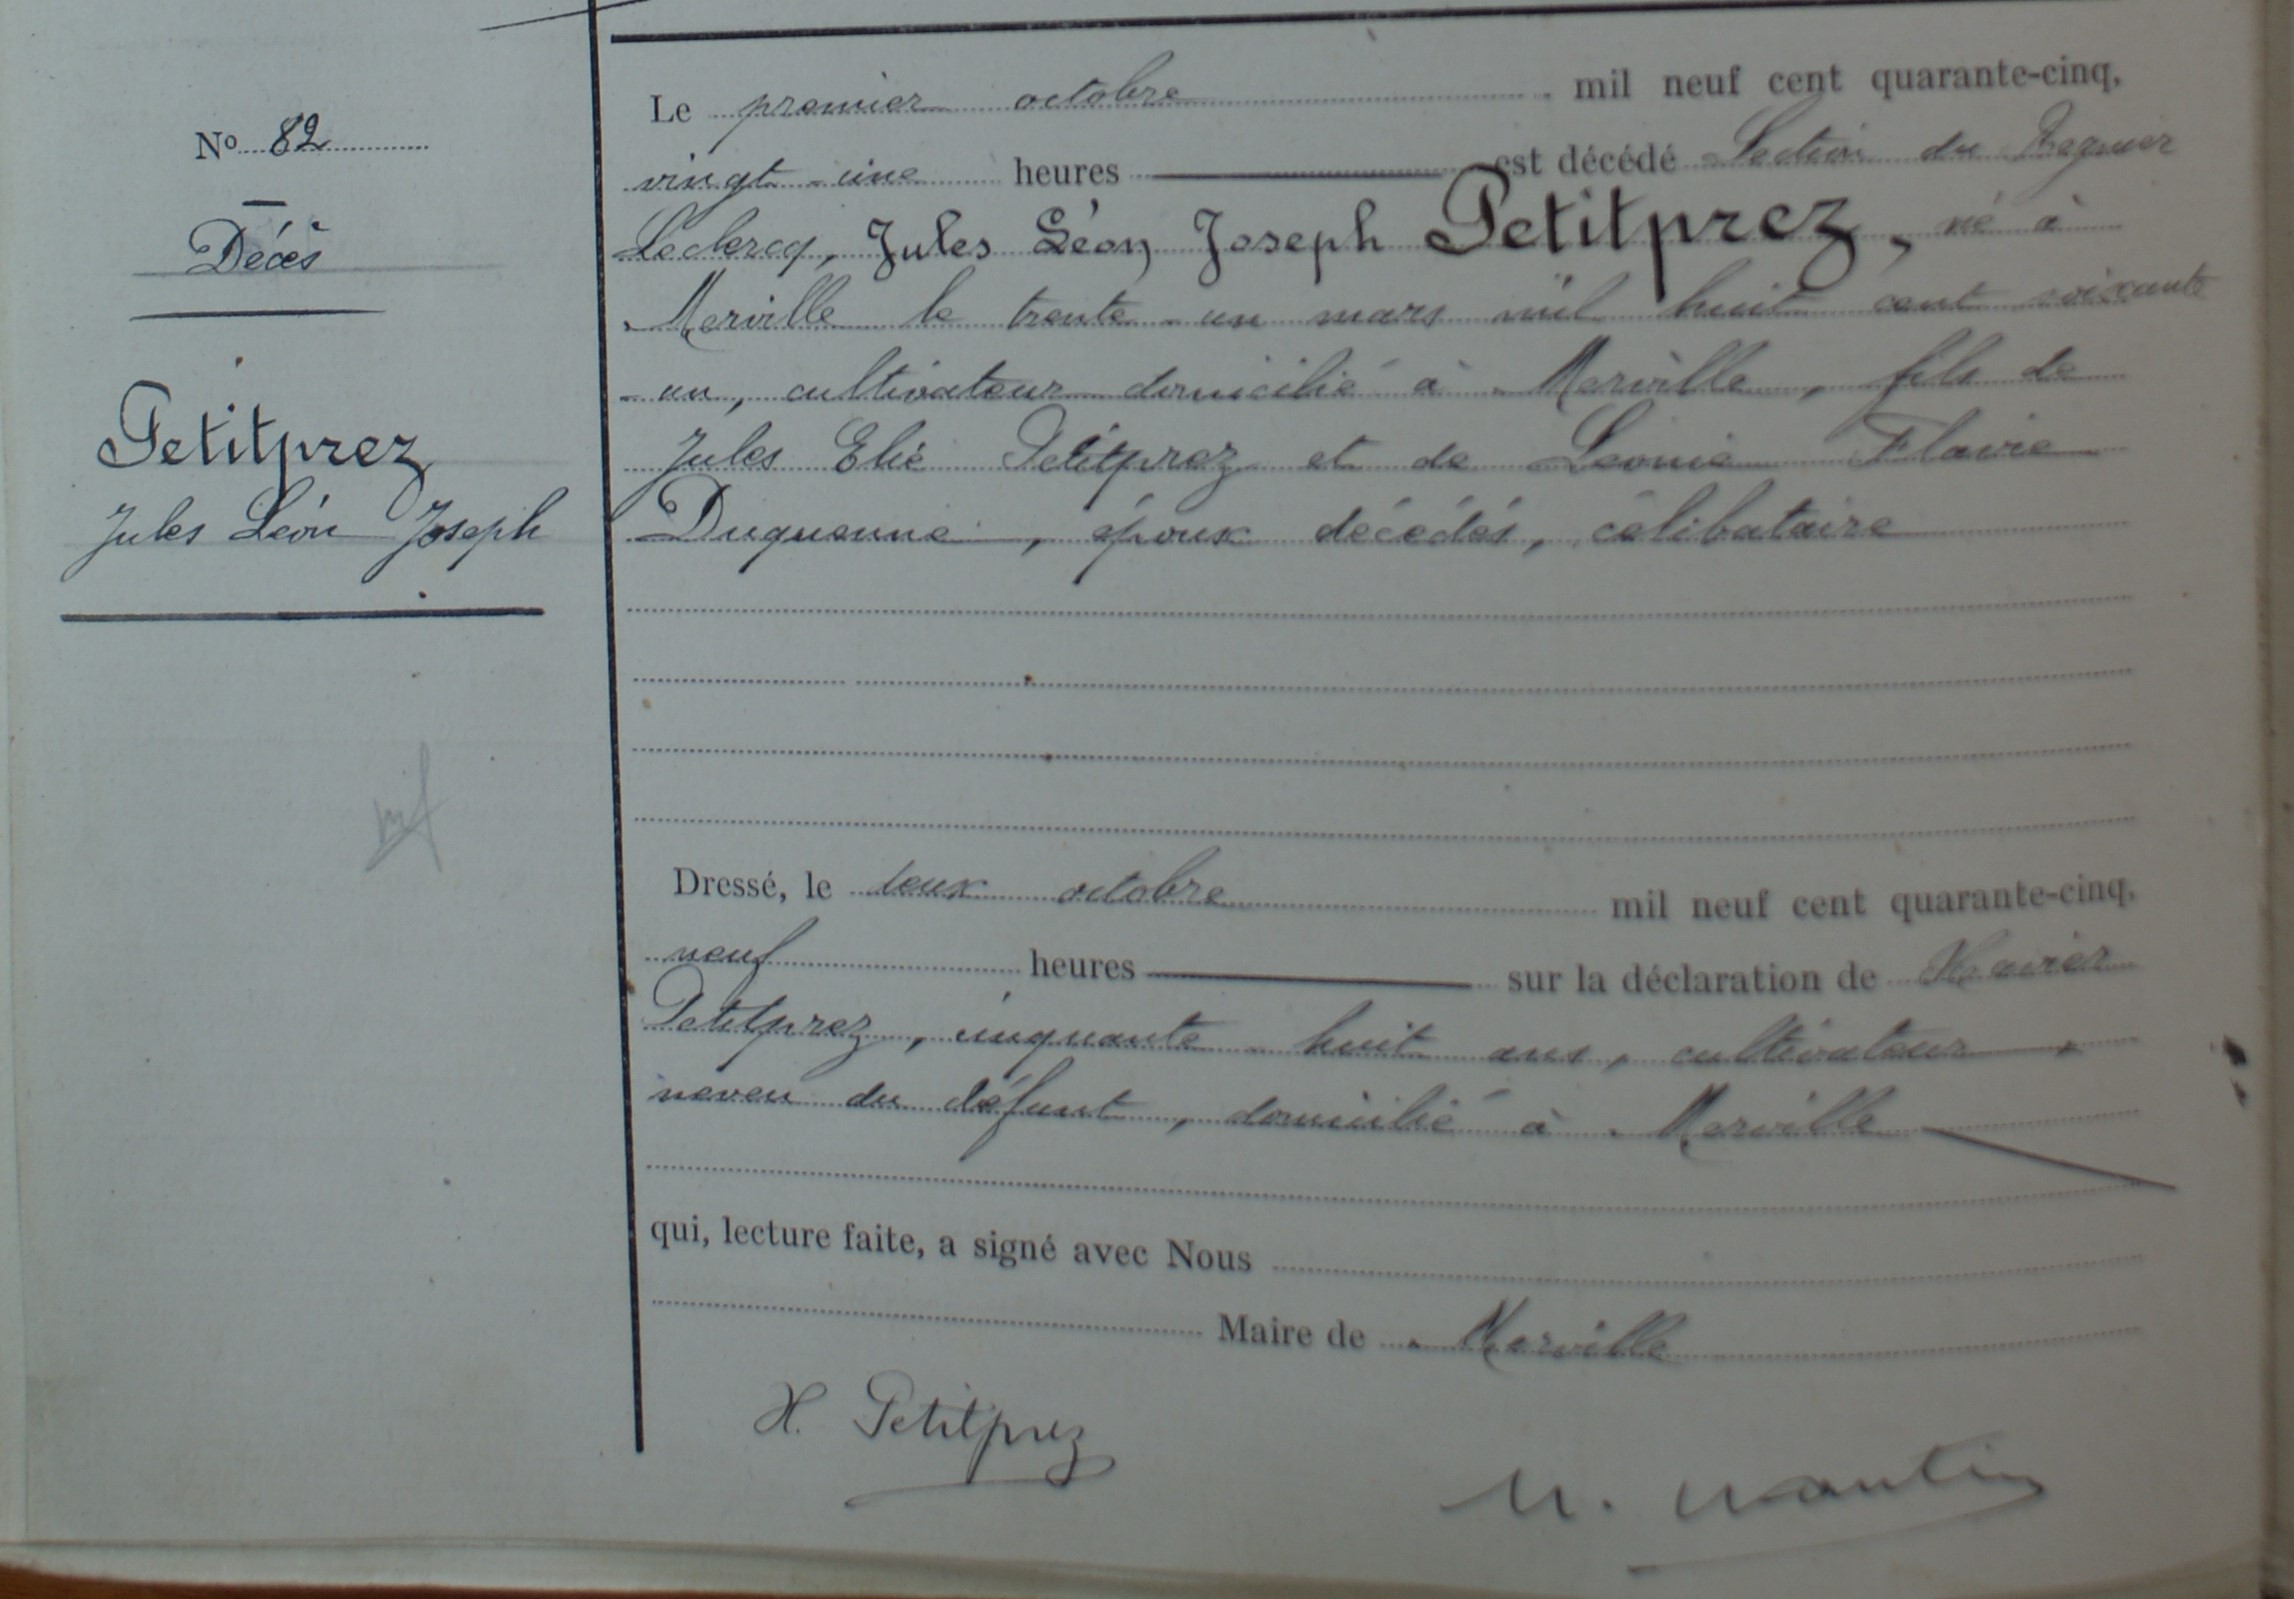 Nº 82
Décès
Petitprez
Jules Léon Joseph
Le premier octobre mil neuf cent quarante-cinq,
vingt-une heures est décédé Section du
Leclercq, Jules Léon Joseph Petitprez, né à
Merville le trente-un mars mil huit cent soixante
-un, cultivateur domicilié à Merville, fils de
Jules Elie Petitprez et de Leonie Flavie
Duquenne, époux décédés, célibataire
Dressé, le deux octobre mil neuf cent quarante-cinq,
neuf heures sur la déclaration de Xavier
Petitprez, cinquante-huit ans, cultivateur,
neveu du défunt, domicilié à Merville
qui, lecture faite, a signé avec Nous
Maire de Merville
X. Petitprez